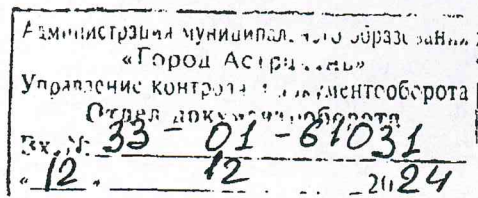 Администрация муниципального образования
«Город Астрахань»
Управление контроля и документооборота
Отдел документооборота
Вх. № 33-01-61031
«12» 12 2024